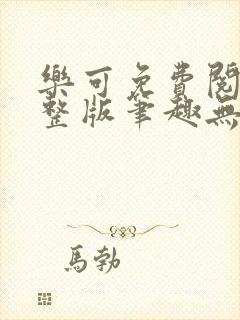 樂可免費閱
整版筆趣無
馬勃